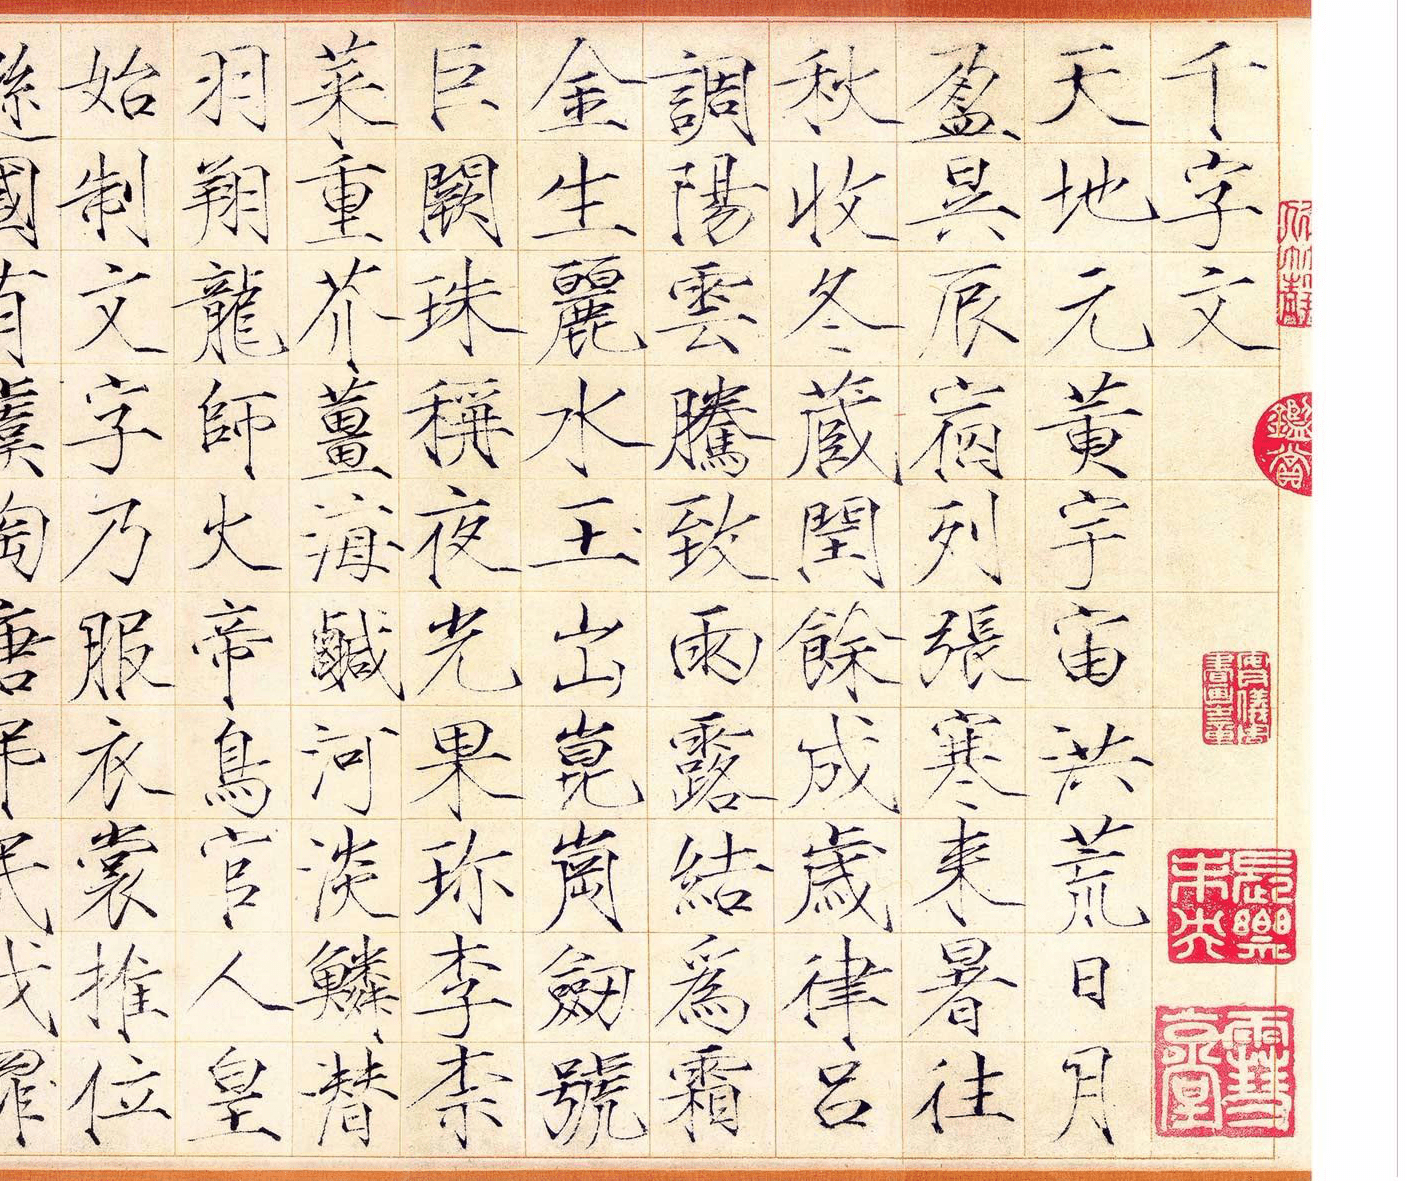 千字文
天地元黄宇宙洪荒日月
盈昃辰宿列張寒来暑往
秋收冬蔵閏餘成歳律呂
調陽雲騰致雨露結爲霜
金生麗水玉出崑崗劔號
巨闕珠稱夜光果珎李柰
菜重芥薑海鹹河淡鱗潜
羽翔龍師火帝鳥官人皇
始制文字乃服衣裳推位
遜國有虞陶唐弔民伐罪
鑑賞
長樂未央